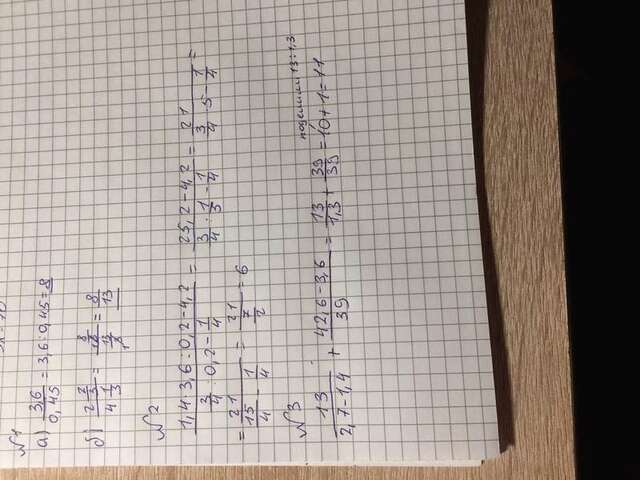 3x = 10
№1
а) 3,6/0,45 = 3,6 : 0,45 = 8
б) 2 2/3 / 4 1/3 = 8/3 / 13/3 = 8/13
№2
1,4 · 3,6 : 0,2 - 4,2 / 3/4 : 0,2 - 1/4 = 25,2 - 4,2 / 3/4 : 1/5 - 1/4 = 21 / 3/4 · 5 - 1/4 =
= 21 / 15/4 - 1/4 = 21 / 7/2 = 6
№3
поделили 13:1,3
13 / 2,7 - 1,4 + 42,6 - 3,6 / 39 = 13/1,3 + 39/39 = 10 + 1 = 11